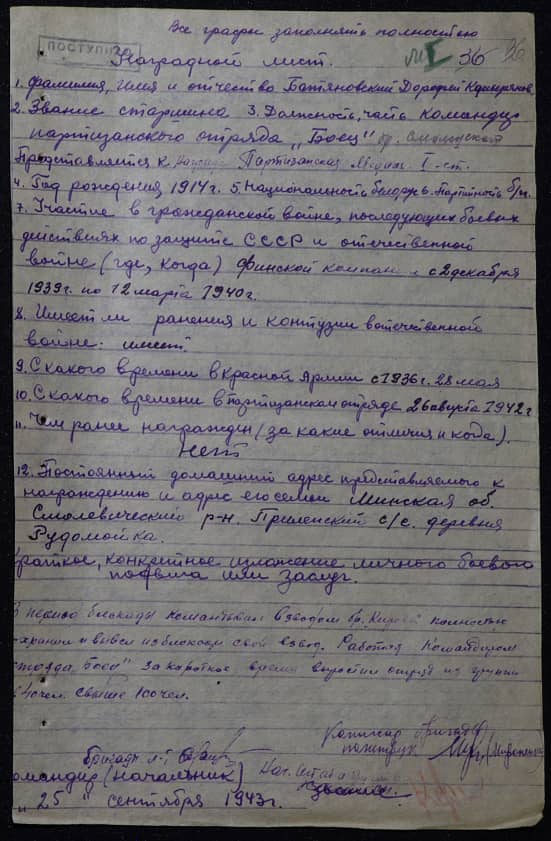 Все графы заполнять полностью
ПОСТУПИЛО
36 36
Наградной лист.
1. Фамилия, имя и отчество Батяновский Дорофей
2. Звание старшина 3. Должность, часть командир
партизанского отряда „Боец" бр. Смолевичская
Представляется к награде Партизанская Медаль I-ст.
4. Год рождения 1914г. 5. Национальность белорус 6. Партийность б/п.
7. Участие в гражданской войне, последующих боевых
действиях по защите СССР и отечественной
войне (где, когда) Финской компани и с 2 декабря
1939г. по 12 марта 1940г.
8. Имеет ли ранения и контузии в отечественной
войне: имеет.
9. С какого времени в Красной Армии с 1936г. 28 мая
10. С какого времени в партизанском отряде 26 августа 1942г
11. Чем ранее награжден (за какие отличия и когда).
Нет
12. Постоянный домашний адрес представляемого к
награждению и адрес его семьи Минская об.
Смолевический р-н. Прилепский с/с. деревня
Рудомойка.
Краткое, конкретное изложение личного боевого
подвига или заслуг.
В период блокады командывал взводом бр. Кирова полностью
сохранил и вывел из блокады свой взвод. Работая командиром
отряда „Боец" за короткое время вырастил отряд из группы
чел. свыше 100 чел.
Комиссар бригады
политрук
Бригады
Командир (начальник)
„25" сентября 1943г.